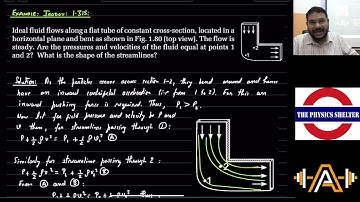 EXAMPLE: IRODOV: 1.315:
Ideal fluid flows along a flat tube of constant cross-section, located in a
horizontal plane and bent as shown in Fig. 1.80 (top view). The flow is
steady. Are the pressures and velocities of the fluid equal at points 1
and 2? What is the shape of the streamlines?
Solution: As the particles move across section 1-2, they bend around and hence
have an inward centripetal acceleration (i.e from 1 to 2). For this an
inward pushing force is required. Thus, P₁ > P₂.
Now let far field pressure and velocity be P and
v then, for streamline passing through ①:
P + ½ ρv² = P₁ + ½ ρv₁² Ⓐ
Similarly for streamline passing through 2:
P + ½ ρv² = P₂ + ½ ρv₂² Ⓑ
From Ⓐ and Ⓑ:
1
2
1
2
THE PHYSICS SHELTER
A